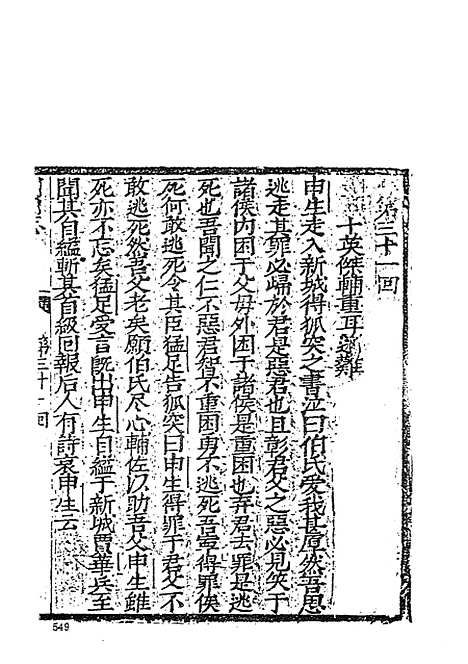 第三十一回
十英傑輔重耳逃難
申生走入新城得狐突之書泣曰伯氏愛我甚厚然吾思
逃走其罪必歸於君是惡君也且彰君父之惡必見笑于
諸侯内困于父母外困于諸侯是重困也弃君去罪是逃
死也吾聞之仁不惡君智不重困勇不逃死吾寧得罪俟
死何敢逃死令其臣猛足告狐突曰申生得罪于君父不
敢逃死然吾父老矣願伯氏尽心輔佐以助吾父申生雖
死亦不忘矣猛足受言既出申生自縊于新城賈華兵至
聞其自縊斬其首級回報后人有詩哀申生云
第三十一回
549